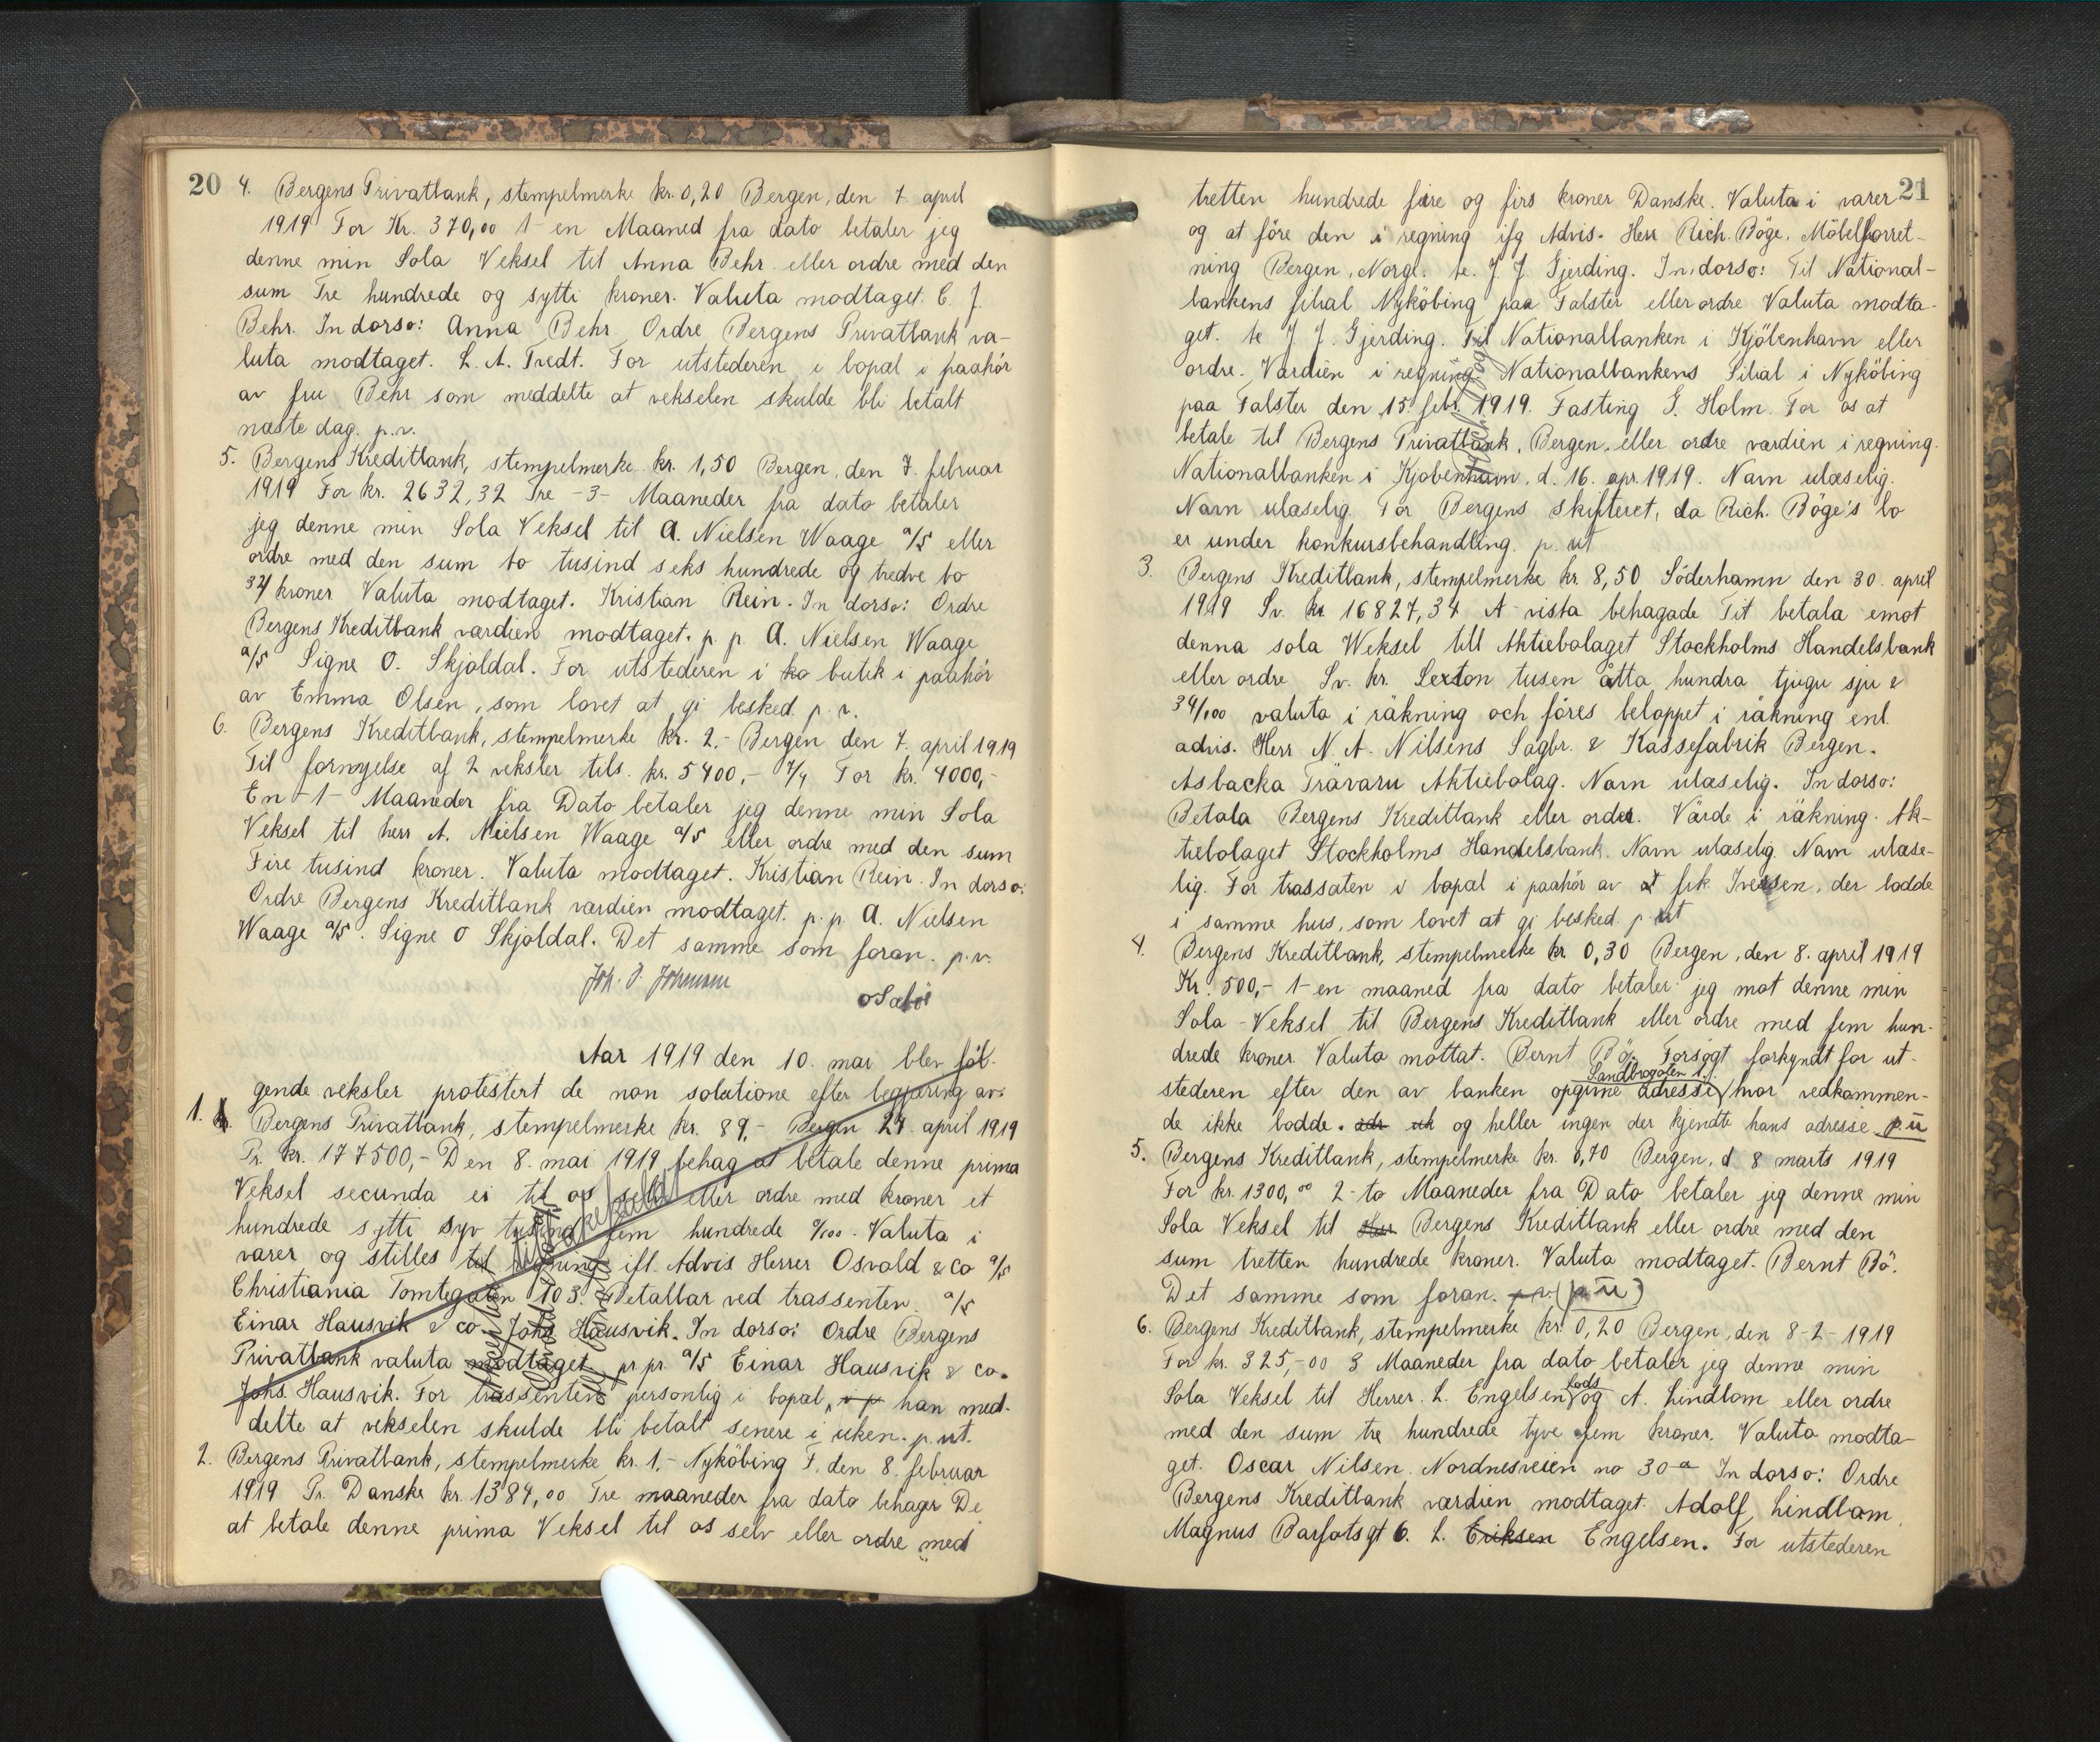 20
4. Bergens Privatbank, stempelmerke kr. 0,20 Bergen, den 7. april
1919 For Kr. 370,00 1 - en Maaned fra dato betaler jeg
denne min Sola Veksel til Anna Behr eller ordre med den
sum Tre hundrede og sytti kroner. Valuta modtaget. C. J.
Behr. In dorso: Anna Behr Ordre Bergens Privatbank va-
luta modtaget. L. A. Tvedt. For utstederen i bopæl i paahör
av fru Behr som meddelte at vekselen skulde bli betalt
næste dag. p.v.
5. Bergens Kreditbank, stempelmerke kr. 1,50 Bergen, den 7. februar
1919 For kr. 2632,32 Tre - 3 - Maaneder fra dato betaler
jeg denne min Sola Veksel til A. Nielsen Waage a/s eller
ordre med den sum to tusind seks hundrede og tredve to
32/ kroner Valuta modtaget. Kristian Rein. In dorso: Ordre
Bergens Kreditbank værdien modtaget. p. p. A. Nielsen Waage
a/s Signe O. Skjoldal. For utstederen i ko butik i paahör
av Emma Olsen, som lovet at gi besked. p. v.
6. Bergens Kreditbank, stempelmerke kr. 2,- Bergen den 7. april 1919
Til fornyelse af 2 veksler tils. kr. 5400,- 7/4 For kr. 4000,-
En - 1 - Maaneder fra Dato betaler jeg denne min Sola
Veksel til herr A. Nielsen Waage a/s eller ordre med den sum
Fire tusind kroner. Valuta modtaget. Kristian Rein. In dorso:
Ordre Bergens Kreditbank værdien modtaget. p. p. A. Nielsen
Waage a/s. Signe O Skjoldal. Det samme som foran. p. v.
Aar 1919 den 10. mai blev föl-
gende veksler protestert de non solutione efter begjæring av:
1. Bergens Privatbank, stempelmerke kr. 89,- Bergen 24. april 1919
Pr. kr. 177500,- Den 8. mai 1919 behag at betale denne prima
Veksel secunda ei til os selv eller ordre med kroner et
hundrede sytti syv tusind fem hundrede 0/100. Valuta i
varer og stilles til regning ifl. Advis Herrer Osvald & Co a/s
Christiania Tomtegaten 103. Betalbar ved trassenten. a/s
Einar Hausvik & Co. Johs Hausvik. In dorso: Ordre Bergens
Privatbank valuta modtaget pr pr. a/s Einar Hausvik & Co.
Johs. Hausvik. For trassenten personlig i bopæl, i p han med-
delte at vekselen skulde bli betalt senere i uken. p. ut.
2. Bergens Privatbank, stempelmerke kr. 1,- Nyköbing F. den 8. februar
1919 Pr. Danske kr. 1384,00 Tre maaneder fra dato behager De
at betale denne prima Veksel til os selv eller ordre med
21
tretten hundrede fire og firs kroner Danske. Valuta i varer
og at före den i regning ifg Advis. Herr Rich. Böge, Möbelforret-
ning Bergen, Norge. J. J. Gjerding. In dorso: Til National-
bankens filial Nyköbing paa Falster eller ordre Valuta modta-
get. J. J. Gjerding. Til Nationalbanken i Kjöbenhavn eller
ordre. Værdien i regning Nationalbankens Filial i Nyköbing
paa Falster den 15. febr. 1919. Fasting G. Holm. For os at
betale til Bergens Privatbank, Bergen, eller ordre værdien i regning.
Nationalbanken i Kjöbenhavn, d. 16. apr. 1919. Navn ulæselig.
Navn ulæselig. For Bergens skifteret, da Rich. Böge's bo
er under konkursbehandling. p. ut
3. Bergens Kreditbank, stempelmerke kr. 8,50 Söderhamn den 30. april
1919 Sv. kr 16827,34 A vista behagade Tit betala emot
denna sola Weksel till Aktiebolaget Stockholms Handelsbank
eller ordre Sv. kr. Sexton tusen åtta hundra tjugu sju &
34/100 valuta i räkning och föres beloppet i räkning enl.
advis. Herr N. A. Nilsens Sagbr. & Kassefabrik Bergen.
Asbacka Trävaru Aktiebolag. Navn ulæselig. In dorso:
Betala Bergens Kreditbank eller order. Värde i räkning. Ak-
tiebolaget Stockholms Handelsbank. Navn ulæselig. Navn ulæse-
lig. For trassaten i bopæl i paahör av frk Iversen, der bodde
i samme hus, som lovet at gi besked. p. ut
4. Bergens Kreditbank, stempelmerke kr 0,30 Bergen, den 8. april 1919
Kr. 500,- 1 - en maaned fra dato betaler jeg mot denne min
Sola - Veksel til Bergens Kreditbank eller ordre med fem hun-
drede kroner. Valuta mottat. Bernt Bö. Forsögt forkyndt for ut-
stederen efter den av banken opgivne adresse Sandbrogaten hvor vedkommen-
de ikke bodde. og heller ingen der kjendte hans adresse p. u
5. Bergens Kreditbank, stempelmerke kr. 0,70 Bergen, d 8 marts 1919
For kr. 1300,00 2 - to Maaneder fra Dato betaler jeg denne min
Sola Veksel til Herr Bergens Kreditbank eller ordre med den
sum tretten hundrede kroner. Valuta modtaget. Bernt Bö.
Det samme som foran. p. v. (p. u)
6. Bergens Kreditbank, stempelmerke kr. 0,20 Bergen, den 8-2-1919
For kr. 325,-00 3 Maaneder fra dato betaler jeg denne min
Sola Veksel til Herrer. L. Engelsen lods og A. Lindbom eller ordre
med den sum tre hundrede tyve fem kroner. Valuta modta-
get. Oscar Nilsen. Nordnesveien no 30 a In dorso: Ordre
Bergens Kreditbank værdien modtaget. Adolf Lindbom
Magnus Barfotsgt 6. L. Eriksen Engelsen. For utstederen